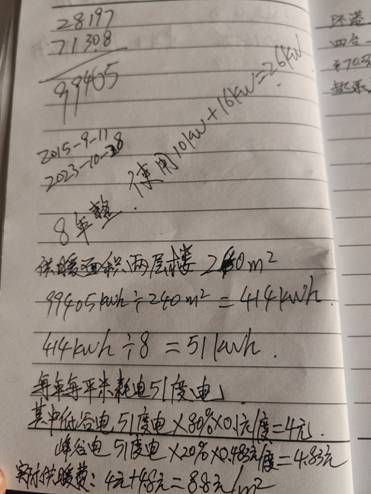 28197
71308
99405
2015-9-11
2023-10-28
8年整. 使用10kw+16kw=26kw
供暖面积两层楼 240m²
99405kwh÷240m²=414kwh
414kwh÷8=51kwh.
每年每平米耗电51度电
其中低谷电51度电×80%×0.1元/度=4元.
峰谷电51度电×20%×0.483元/度=4.83元
实际供暖费:4元+4.8元=8.8元/m²
环港
四台